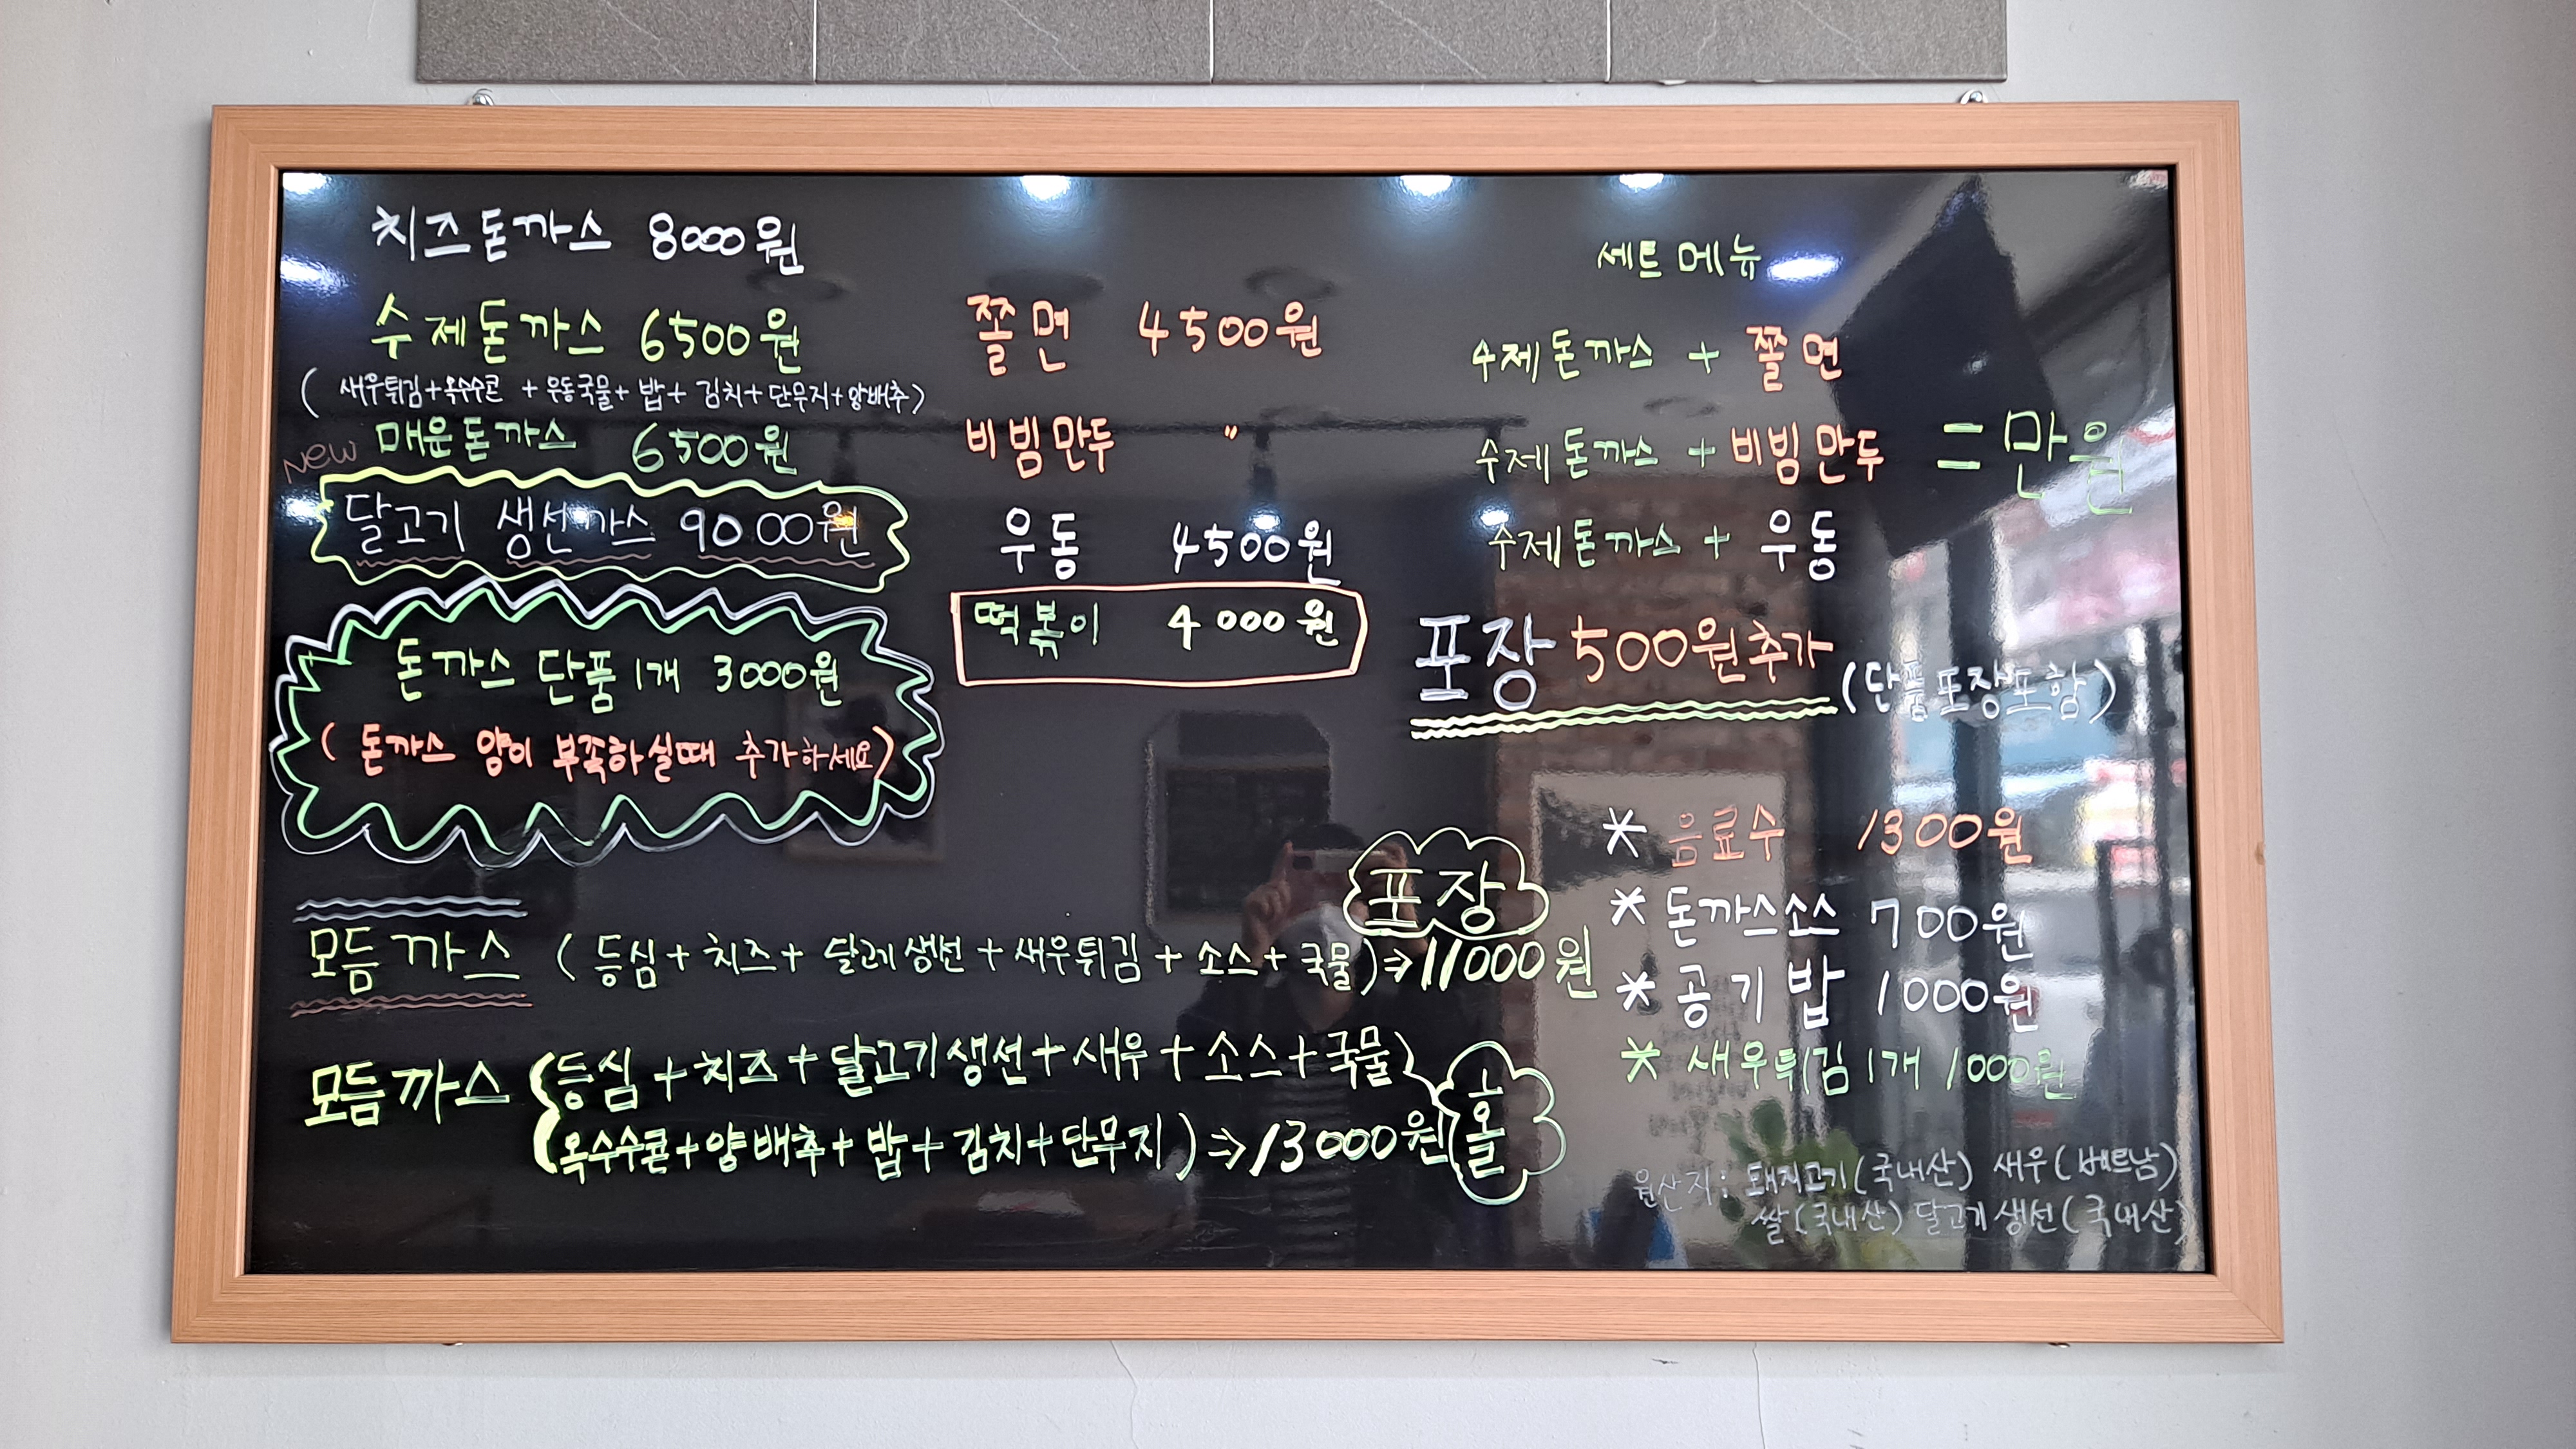 치즈돈까스 8000원
수제돈까스 6500원
(새우튀김+옥수수콘 + 우동국물+ 밥+ 김치+단무지+양배추)
New 매운돈까스 6500원
달고기 생선까스 9000원
돈까스 단품 1개 3000원
(돈까스 양이 부족하실때 추가하세요)
쫄면 4500원
비빔만두 〃
우동 4500원
떡볶이 4000원
세트메뉴
수제돈까스 + 쫄면
수제돈까스 + 비빔만두 = 만원
수제돈까스 + 우동
포장 500원추가 (단품포장포함)
모듬까스 (등심+치즈+ 달고기생선+새우튀김 + 소스+ 국물)⇒11000원 포장
모듬까스 (등심+치즈+달고기생선+새우+소스+국물)
(옥수수콘+양배추+밥+김치+단무지)⇒13000원 홀
* 음료수 1300원
* 돈까스소스 700원
* 공기밥 1000원
* 새우튀김1개 1000원
원산지: 돼지고기(국내산) 새우(베트남)
쌀(국내산) 달고기생선(국내산)